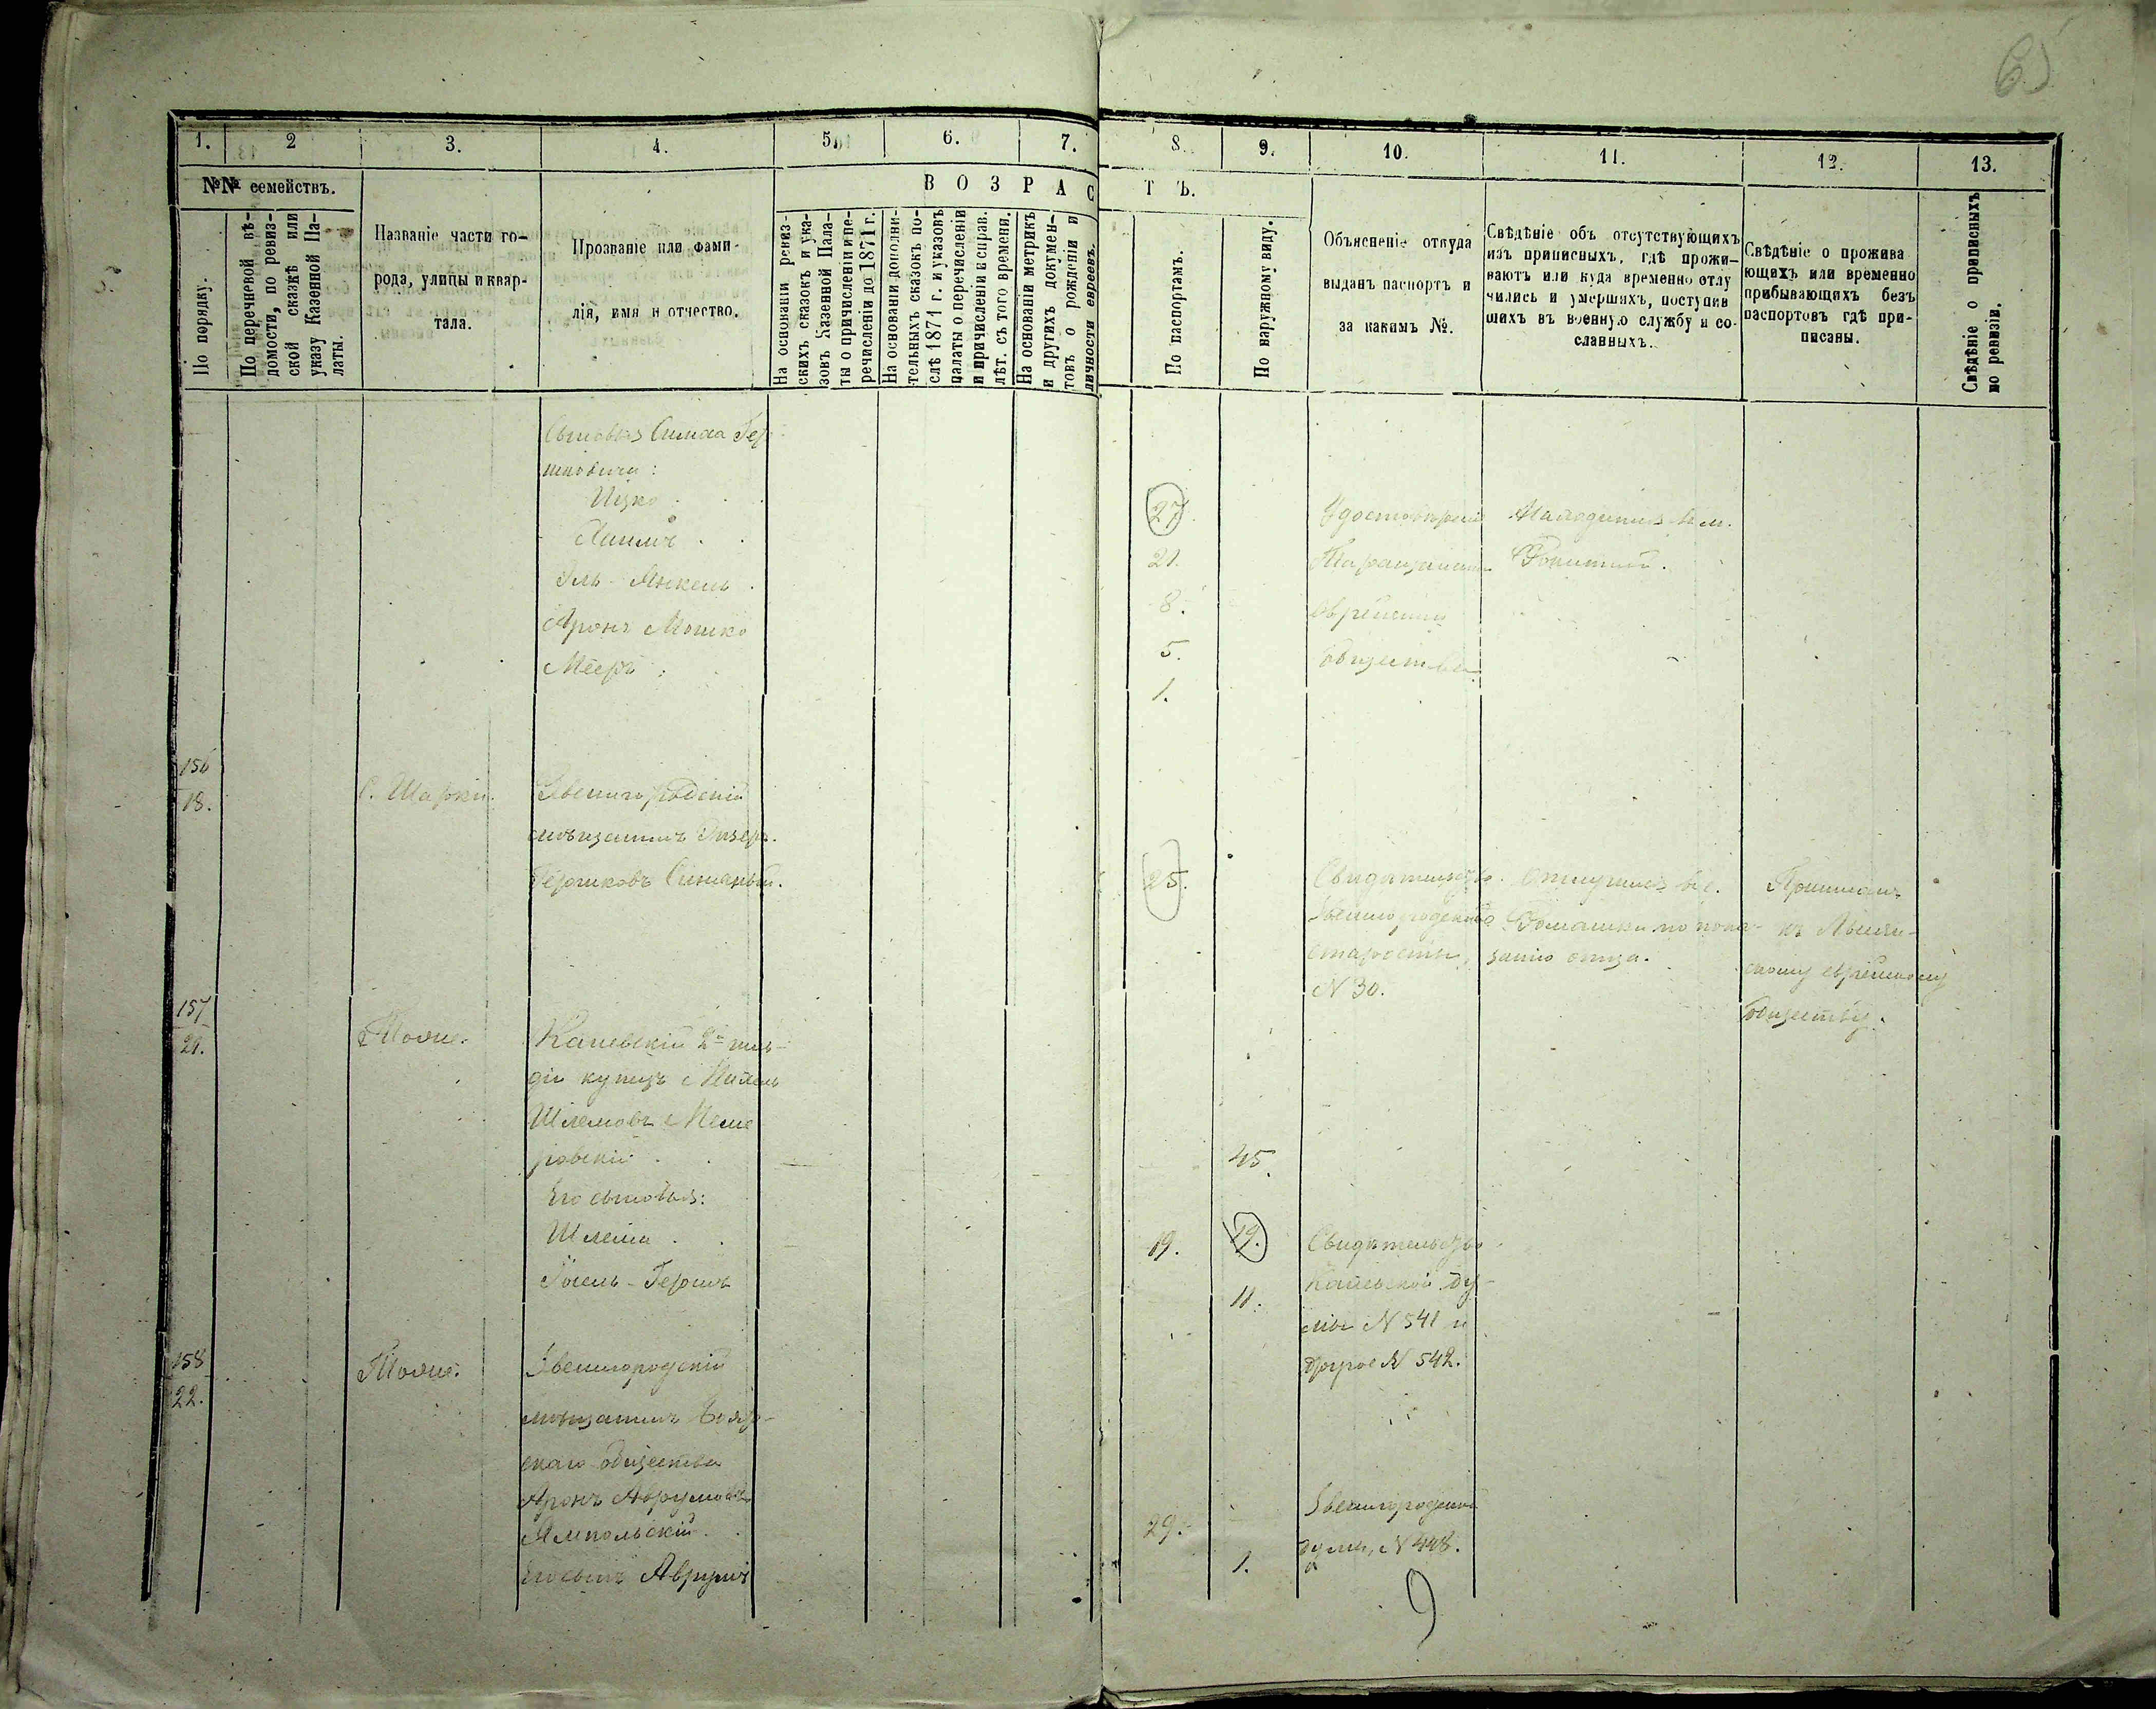 65
1. 2 3. 4. 5. 6. 7. 8. 9. 10. 11. 12. 13.
№№ семействъ.
В О З Р А С Т Ъ.
По порядку.
По перечневой вѣ-
домости, по ревиз-
ской сказкѣ или
указу Казенной Па-
латы.
Названіе части го-
рода, улицы и квар-
тала.
Прозваніе или фами-
лія, имя и отчество.
На основаніи ревиз-
скихъ сказокъ и ука-
зовъ Казенной Пала-
ты о причисленіи и пе-
речисленіи до 1871 г.
На основаніи дополни-
тельныхъ сказокъ по-
слѣ 1871 г. и указовъ
палаты о перечисленіи
и причисленіи и справ.
лѣт. съ того времени.
На основаніи метрикъ
и другихъ докумен-
товъ о рожденіи и
личности евреевъ.
По паспортамъ.
По наружному виду.
Объясненіе откуда
выданъ паспортъ и
за какимъ №.
Свѣдѣніе объ отсутствующихъ
изъ приписныхъ, гдѣ прожи-
ваютъ или куда временно отлу
чились и умершихъ, поступив
шихъ въ военную службу и со-
сланныхъ.
Свѣдѣніе о прожива
ющихъ или временно
прибывающихъ безъ
паспортовъ гдѣ при-
писаны.
Свѣдѣніе о приписныхъ
по ревизіи.
Сыновья Симха Гер
шковича:
Ицко
Хаимъ
Эль-Янкель
Аронъ Мошко
Мееръ
27
21.
8.
5.
1.
Удостовѣреніе
Таращанск
еврейскаго
общества
156
18.
С. Шарки.
Звенигородскій
мѣщанинъ
Гершковъ
25.
Свидѣтельство
Звенигородскаго
старосты,
N 30.
Отлучился въ с.
Ромашки по пока-
занію отца.
Приписанъ
къ
скому еврейскому
обществу.
157
21.
Тоже.
Каневскій 2й гиль-
діи купецъ
Шлемовъ
ровскій
Его сыновья:
Шлема
Іосель-Гершъ
45.
19.
19.
11.
Свидѣтельство
Каневской Ду-
мы N 541 и
другое N 542.
158
22.
Тоже.
Звенигородскій
мѣщанинъ Бояр-
скаго общества
Аронъ Аврумовъ
Ямпольскій.
Его сынъ Аврумъ
29.
1.
Звенигородской
думы, N 448.
9